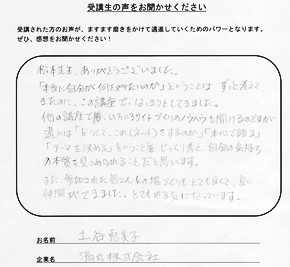 受講生の声をお聞かせください
受講された方のお声が、ますます磨きをかけて邁進していくためのパワーとなります。
ぜひ、感想をお聞かせください！
松本先生、ありがとうございました。
「本当に自分が何をやりたいのか」ということは ずっと考えて
きたのに、この講座で、はっきりとしてきました。
他の講座で、いろいろサイトづくりのノウハウも聞けるのだが
違いは「どうして、これ(ネット)をするのか」「本心で語る」
「テーマを決める」ということを じっくり考え、自分の気持ち
の本質を見つめられることだと思います。
また、参加された皆さんとの場づくりも とても良くて、良い
仲間ができました。とてもやる気になっています。
お名前 土谷 恵美子
企業名 株式会社